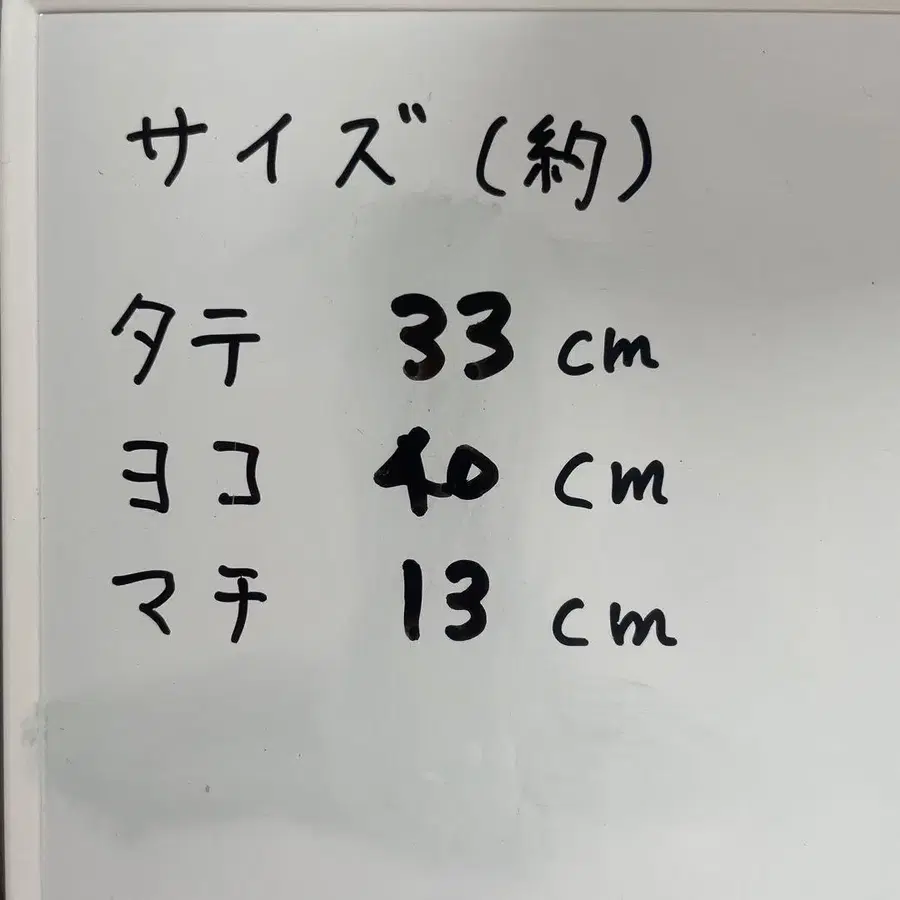 サイズ(約)
タテ 33 cm
ヨコ 40 cm
マチ 13 cm